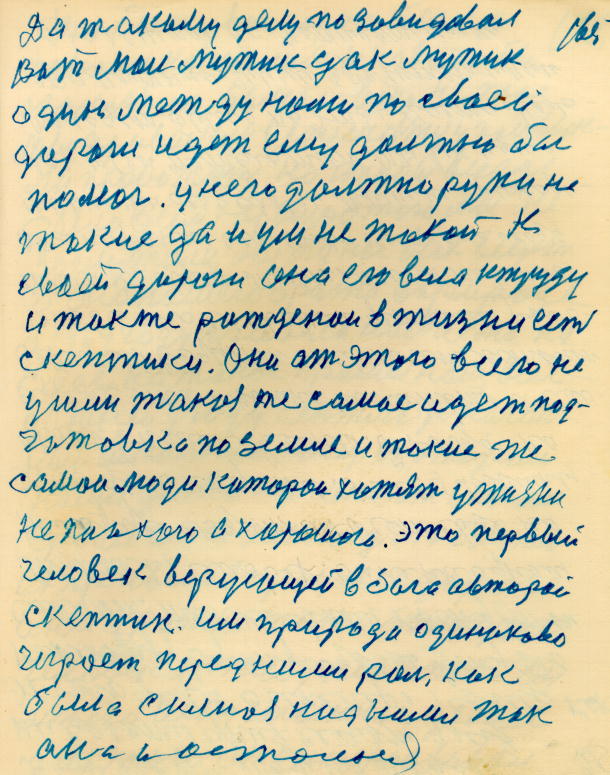 Да такому делу позавидовал
Вот мои мужик как мужик
один между нами по своей
дороги идет ему должно бог
помог. у него должно руки не
такие да и ум не такой К
своей дороги она его вела к труду
и также рожденои в жизни есть
скептики. Они от этого всего не
ушли такоя же самое идет под-
готовка по земле и такие же
самои люди которои хотят у жизни
не плохого а хорошого. это первый
человек верующей в бога авторой
скептик. им природа одинаково
играет перед ними рол. как
была силноя над ними так
она и осталося